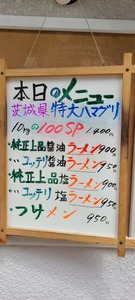 本日のメニュー
茨城県特大ハマグリ
10kgの100SP 1,400円
・純正上品醤油ラーメン900円
・〃コッテリ醤油ラーメン950円
・純正上品塩ラーメン900円
・〃コッテリ塩ラーメン950円
・つけメン 950円